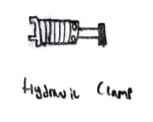 Hydraulic Clamp